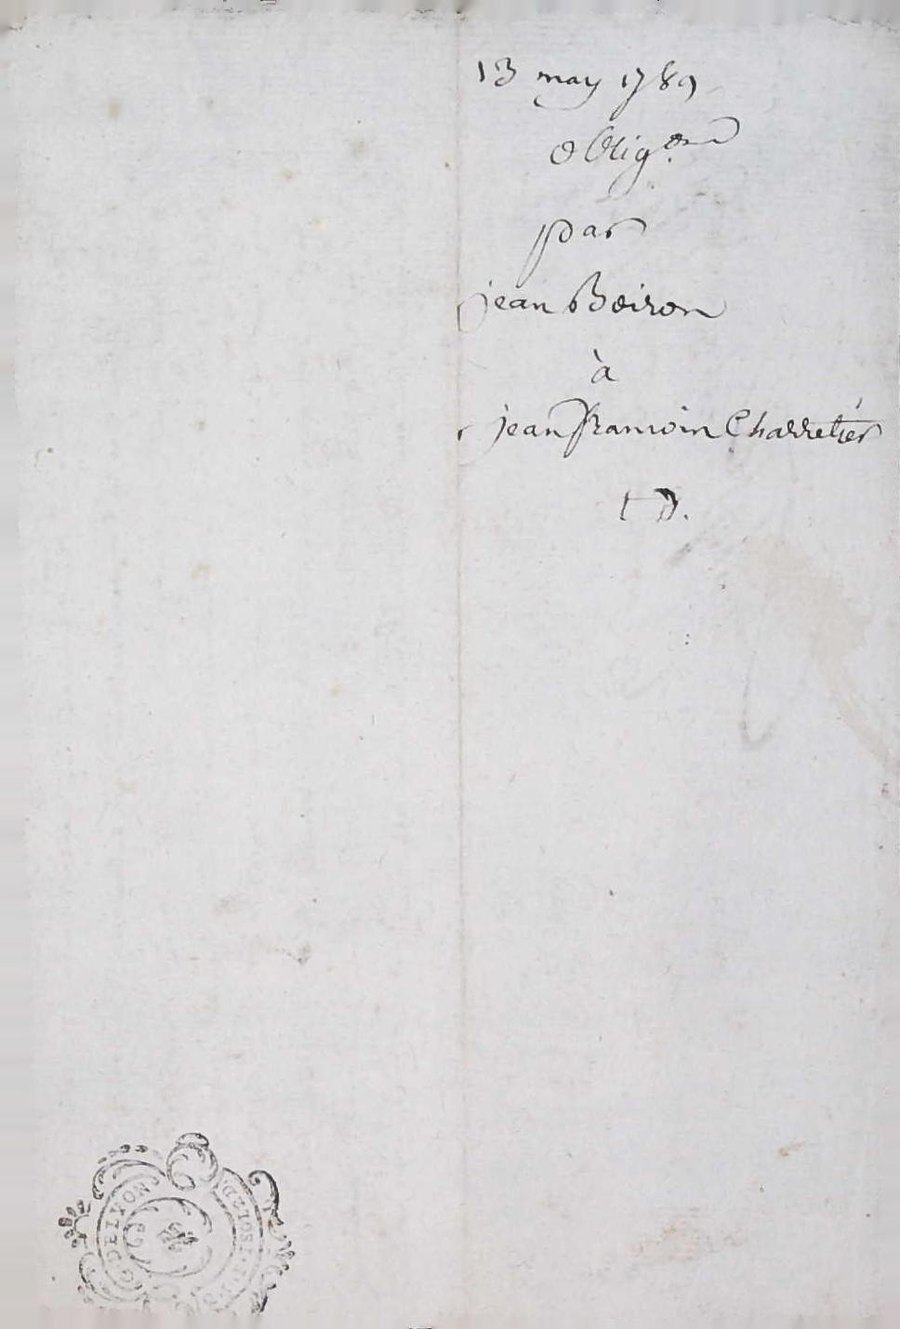 13 may 1789
oblig.on
par
jean Boiron
à
jean françois Charretier
G DE LYON